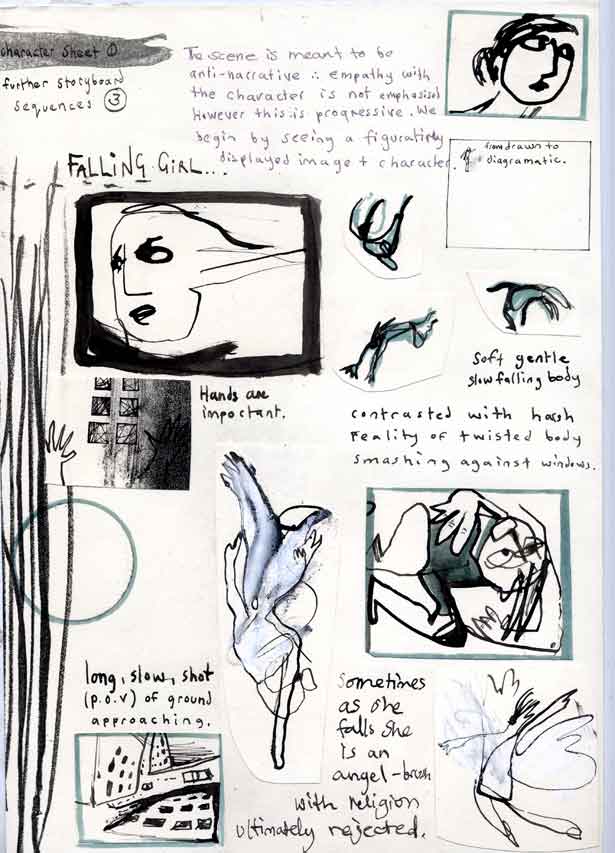 character sheet ①
further storyboard
sequences ③
The scene is meant to be
anti-narrative ∴ empathy with
the character is not emphasised
However this is progressive. We
begin by seeing a figuratively
displayed image + character.
from drawn to
diagramatic.
FALLING GIRL...
Soft gentle
slow falling body
Hands are
important.
contrasted with harsh
reality of twisted body
smashing against windows.
long, slow, shot
(p.o.v) of ground
approaching.
Sometimes
as she
falls she
is an
angel-
with religion
ultimately rejected.